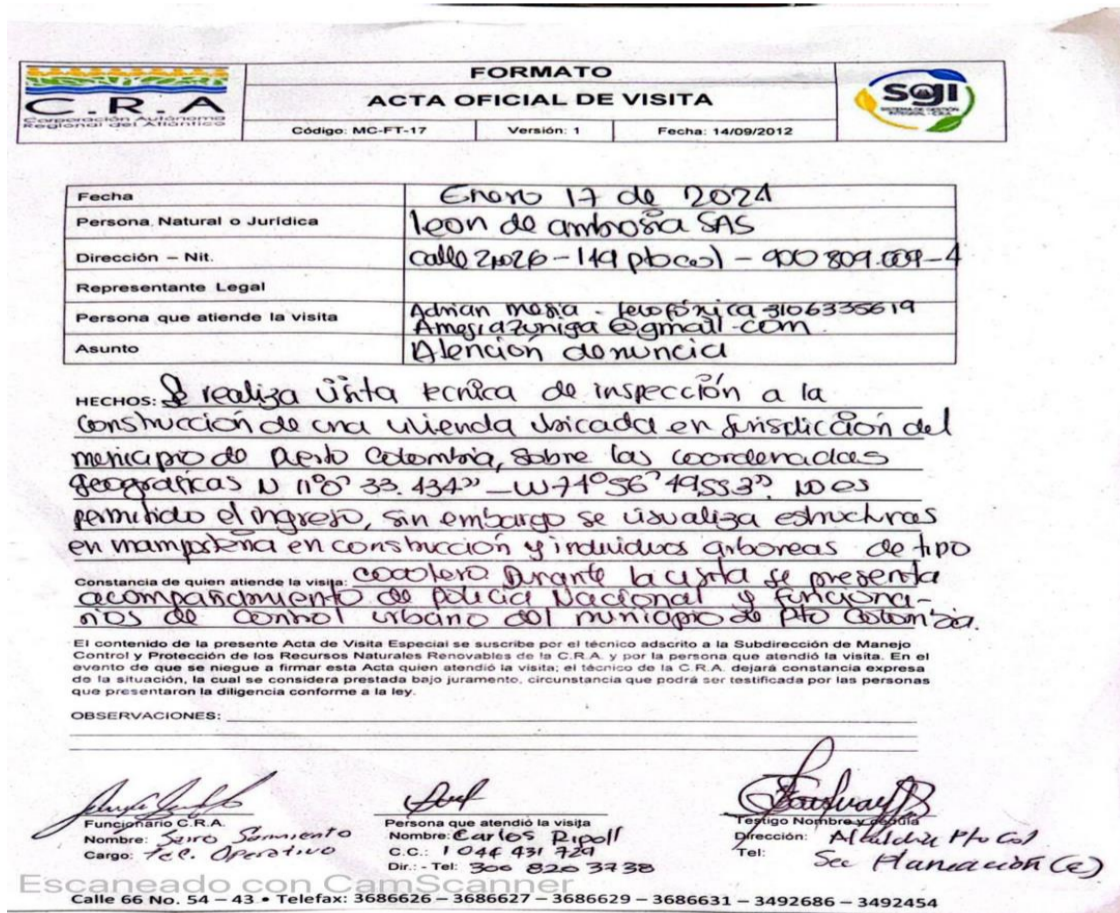 C.R.A
Corporación Autónoma
Regional del Atlántico
FORMATO
ACTA OFICIAL DE VISITA
Código: MC-FT-17 Versión: 1 Fecha: 14/09/2012
SGI
SISTEMA DE GESTIÓN
INTEGRAL - C.R.A.
Fecha Enero 17 de 2024
Persona Natural o Jurídica leon de ambrosia SAS
Dirección – Nit. calle 2 - 149 pto col - 900 809.009-4
Representante Legal
Persona que atiende la visita Adrian mesia - 3106335619
@gmail.com
Asunto Atención denuncia
HECHOS: Se realiza visita tecnica de inspección a la
construcción de una vivienda ubicada en jurisdicción del
municipio de Puerto Colombia, sobre las coordenadas
geograficas N 11°0' 33.434" - W74°56' 49553". No es
permitido el ingreso, sin embargo se visualiza estructuras
en mampostería en construcción y individuos arboreas de tipo
Constancia de quien atiende la visita: cocotero Durante la visita se presenta
acompañamiento de policia Nacional y funciona-
rios de control urbano del municipio de Pto Colombia.
El contenido de la presente Acta de Visita Especial se suscribe por el técnico adscrito a la Subdirección de Manejo
Control y Protección de los Recursos Naturales Renovables de la C.R.A. y por la persona que atendió la visita. En el
evento de que se niegue a firmar esta Acta quien atendió la visita; el técnico de la C.R.A. dejará constancia expresa
de la situación, la cual se considera prestada bajo juramento, circunstancia que podrá ser testificada por las personas
que presentaron la diligencia conforme a la ley.
OBSERVACIONES:
Funcionario C.R.A. Persona que atendió la visita Testigo Nombre y cédula
Nombre: Sarmiento Nombre: Carlos Ripoll Dirección: Alcaldia Pto Col
Cargo: Tec. Operativo C.C.: 1044 431 729 Tel: Sec Planeación (e)
Dir.: - Tel: 300 820 3738
Escaneado con CamScanner
Calle 66 No. 54 – 43 • Telefax: 3686626 – 3686627 – 3686629 – 3686631 – 3492686 – 3492454